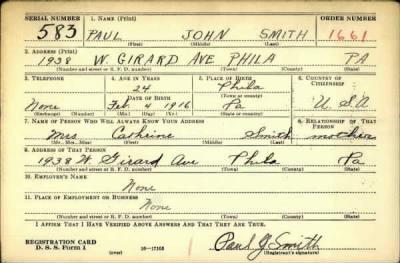 SERIAL NUMBER 1. NAME (Print) ORDER NUMBER
583 PAUL JOHN SMITH 1661
(First) (Middle) (Last)
2. ADDRESS (Print)
1938 W. GIRARD AVE PHILA PA
(Number and street or R. F. D. number) (Town) (County) (State)
3. TELEPHONE 4. AGE IN YEARS 5. PLACE OF BIRTH 6. COUNTRY OF CITIZENSHIP
24 Phila
DATE OF BIRTH (Town or county)
None Feb. 4 1916 Pa U.S.A
(Exchange) (Number) (Mo.) (Day) (Yr.) (State or country)
7. NAME OF PERSON WHO WILL ALWAYS KNOW YOUR ADDRESS 8. RELATIONSHIP OF THAT PERSON
Mrs Smith mother
(Mr., Mrs., Miss) (First) (Middle) (Last)
9. ADDRESS OF THAT PERSON
1938 W. Girard Ave Phila Pa
(Number and street or R. F. D. number) (Town) (County) (State)
10. EMPLOYER'S NAME
None
11. PLACE OF EMPLOYMENT OR BUSINESS
None
(Number and street or R. F. D. number) (Town) (County) (State)
I AFFIRM THAT I HAVE VERIFIED ABOVE ANSWERS AND THAT THEY ARE TRUE.
REGISTRATION CARD
D. S. S. Form 1 16-17105 Paul J Smith
(Registrant's signature)